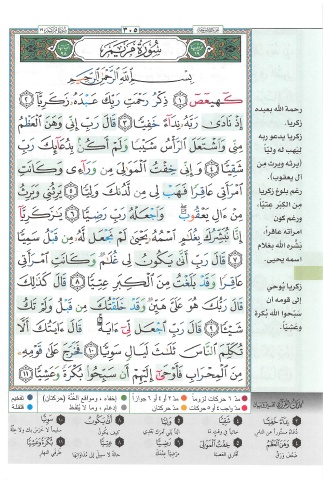 ٣٠٥
سُورَةُ مَرْيَم
بِسْمِ ٱللَّهِ ٱلرَّحْمَٰنِ ٱلرَّحِيمِ
كٓهيعٓصٓ ١ ذِكْرُ رَحْمَتِ رَبِّكَ عَبْدَهُۥ زَكَرِيَّآ ٢
إِذْ نَادَىٰ رَبَّهُۥ نِدَآءً خَفِيًّا ٣ قَالَ رَبِّ إِنِّى وَهَنَ ٱلْعَظْمُ
مِنِّى وَٱشْتَعَلَ ٱلرَّأْسُ شَيْبًا وَلَمْ أَكُنۢ بِدُعَآئِكَ رَبِّ
شَقِيًّا ٤ وَإِنِّى خِفْتُ ٱلْمَوَٰلِىَ مِن وَرَآءِى وَكَانَتِ
ٱمْرَأَتِى عَاقِرًا فَهَبْ لِى مِن لَّدُنكَ وَلِيًّا ٥ يَرِثُنِى وَيَرِثُ
مِنْ ءَالِ يَعْقُوبَ وَٱجْعَلْهُ رَبِّ رَضِيًّا ٦ يَٰزَكَرِيَّآ
إِنَّا نُبَشِّرُكَ بِغُلَٰمٍ ٱسْمُهُۥ يَحْيَىٰ لَمْ نَجْعَل لَّهُۥ مِن قَبْلُ سَمِيًّا
٧ قَالَ رَبِّ أَنَّىٰ يَكُونُ لِى غُلَٰمٌ وَكَانَتِ ٱمْرَأَتِى
عَاقِرًا وَقَدْ بَلَغْتُ مِنَ ٱلْكِبَرِ عِتِيًّا ٨ قَالَ كَذَٰلِكَ
قَالَ رَبُّكَ هُوَ عَلَىَّ هَيِّنٌ وَقَدْ خَلَقْتُكَ مِن قَبْلُ وَلَمْ تَكُ
شَيْـًٔا ٩ قَالَ رَبِّ ٱجْعَل لِّىٓ ءَايَةً قَالَ ءَايَتُكَ أَلَّا
تُكَلِّمَ ٱلنَّاسَ ثَلَٰثَ لَيَالٍ سَوِيًّا ١٠ فَخَرَجَ عَلَىٰ قَوْمِهِۦ
مِنَ ٱلْمِحْرَابِ فَأَوْحَىٰٓ إِلَيْهِمْ أَن سَبِّحُوا۟ بُكْرَةً وَعَشِيًّا ١١
رحمة الله بعبده
زكريا.
زكريا يدعو ربه
ليهب له وليًا
أيرثه ويرث من
آل يعقوب).
رغم بلوغ زكريا
من الكِبَر عِتِيّاً،
ورغم كون
امرأته عاقراً،
بشّره الله بغلام
اسمه يحيى.
زكريا يُوحي
إلى قومه أن
سَبّحوا اللهَ بُكرة
وعشيّاً.
مدّ ٦ حركات لزوماً
مدّ ٢ أو ٤ أو ٦ جوازاً
إخفاء، ومواقع الغُنَّة (حركتان)
تفخيم
مدّ واجب ٤ أو ٥ حركات
مدّ حركتان
إدغام، وما لا يُلفَظ
قلقلة